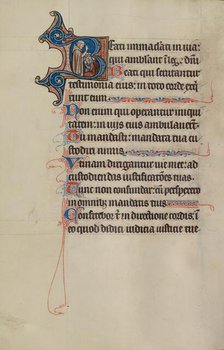 Beati inmaclati in uia:
qui amblant ī lege dn̄i.
Beati qui scrutantur
testimonia eius: in toto corde, exq̄
runt eum.
Non enim qui operantur iniqui
tatem: in uijs eius ambulauerūt.
Tu mandasti: mandata tua cu
stodiri nimis.
Utinam dirigantur uie mee: ad
custodiendas iustificatōes tuas.
Tunc non confundar: cū perspexero
in omnibȝ mandatis tuis
Confitebor t̄ in directione cordis: ī
eo quod didici iudicia iusticie tue.